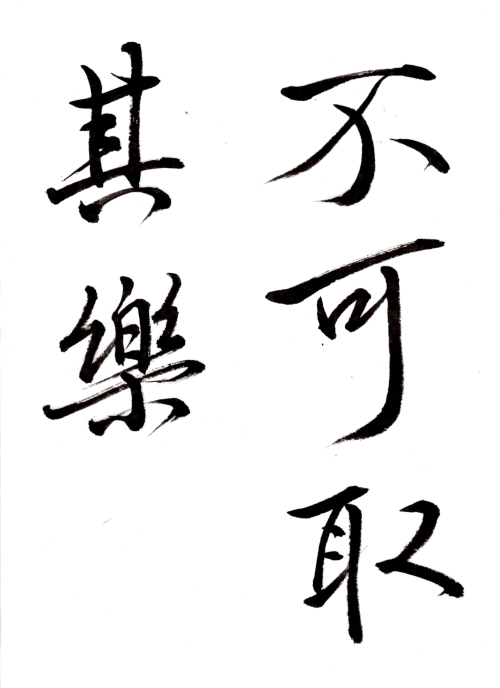 不可取
其樂